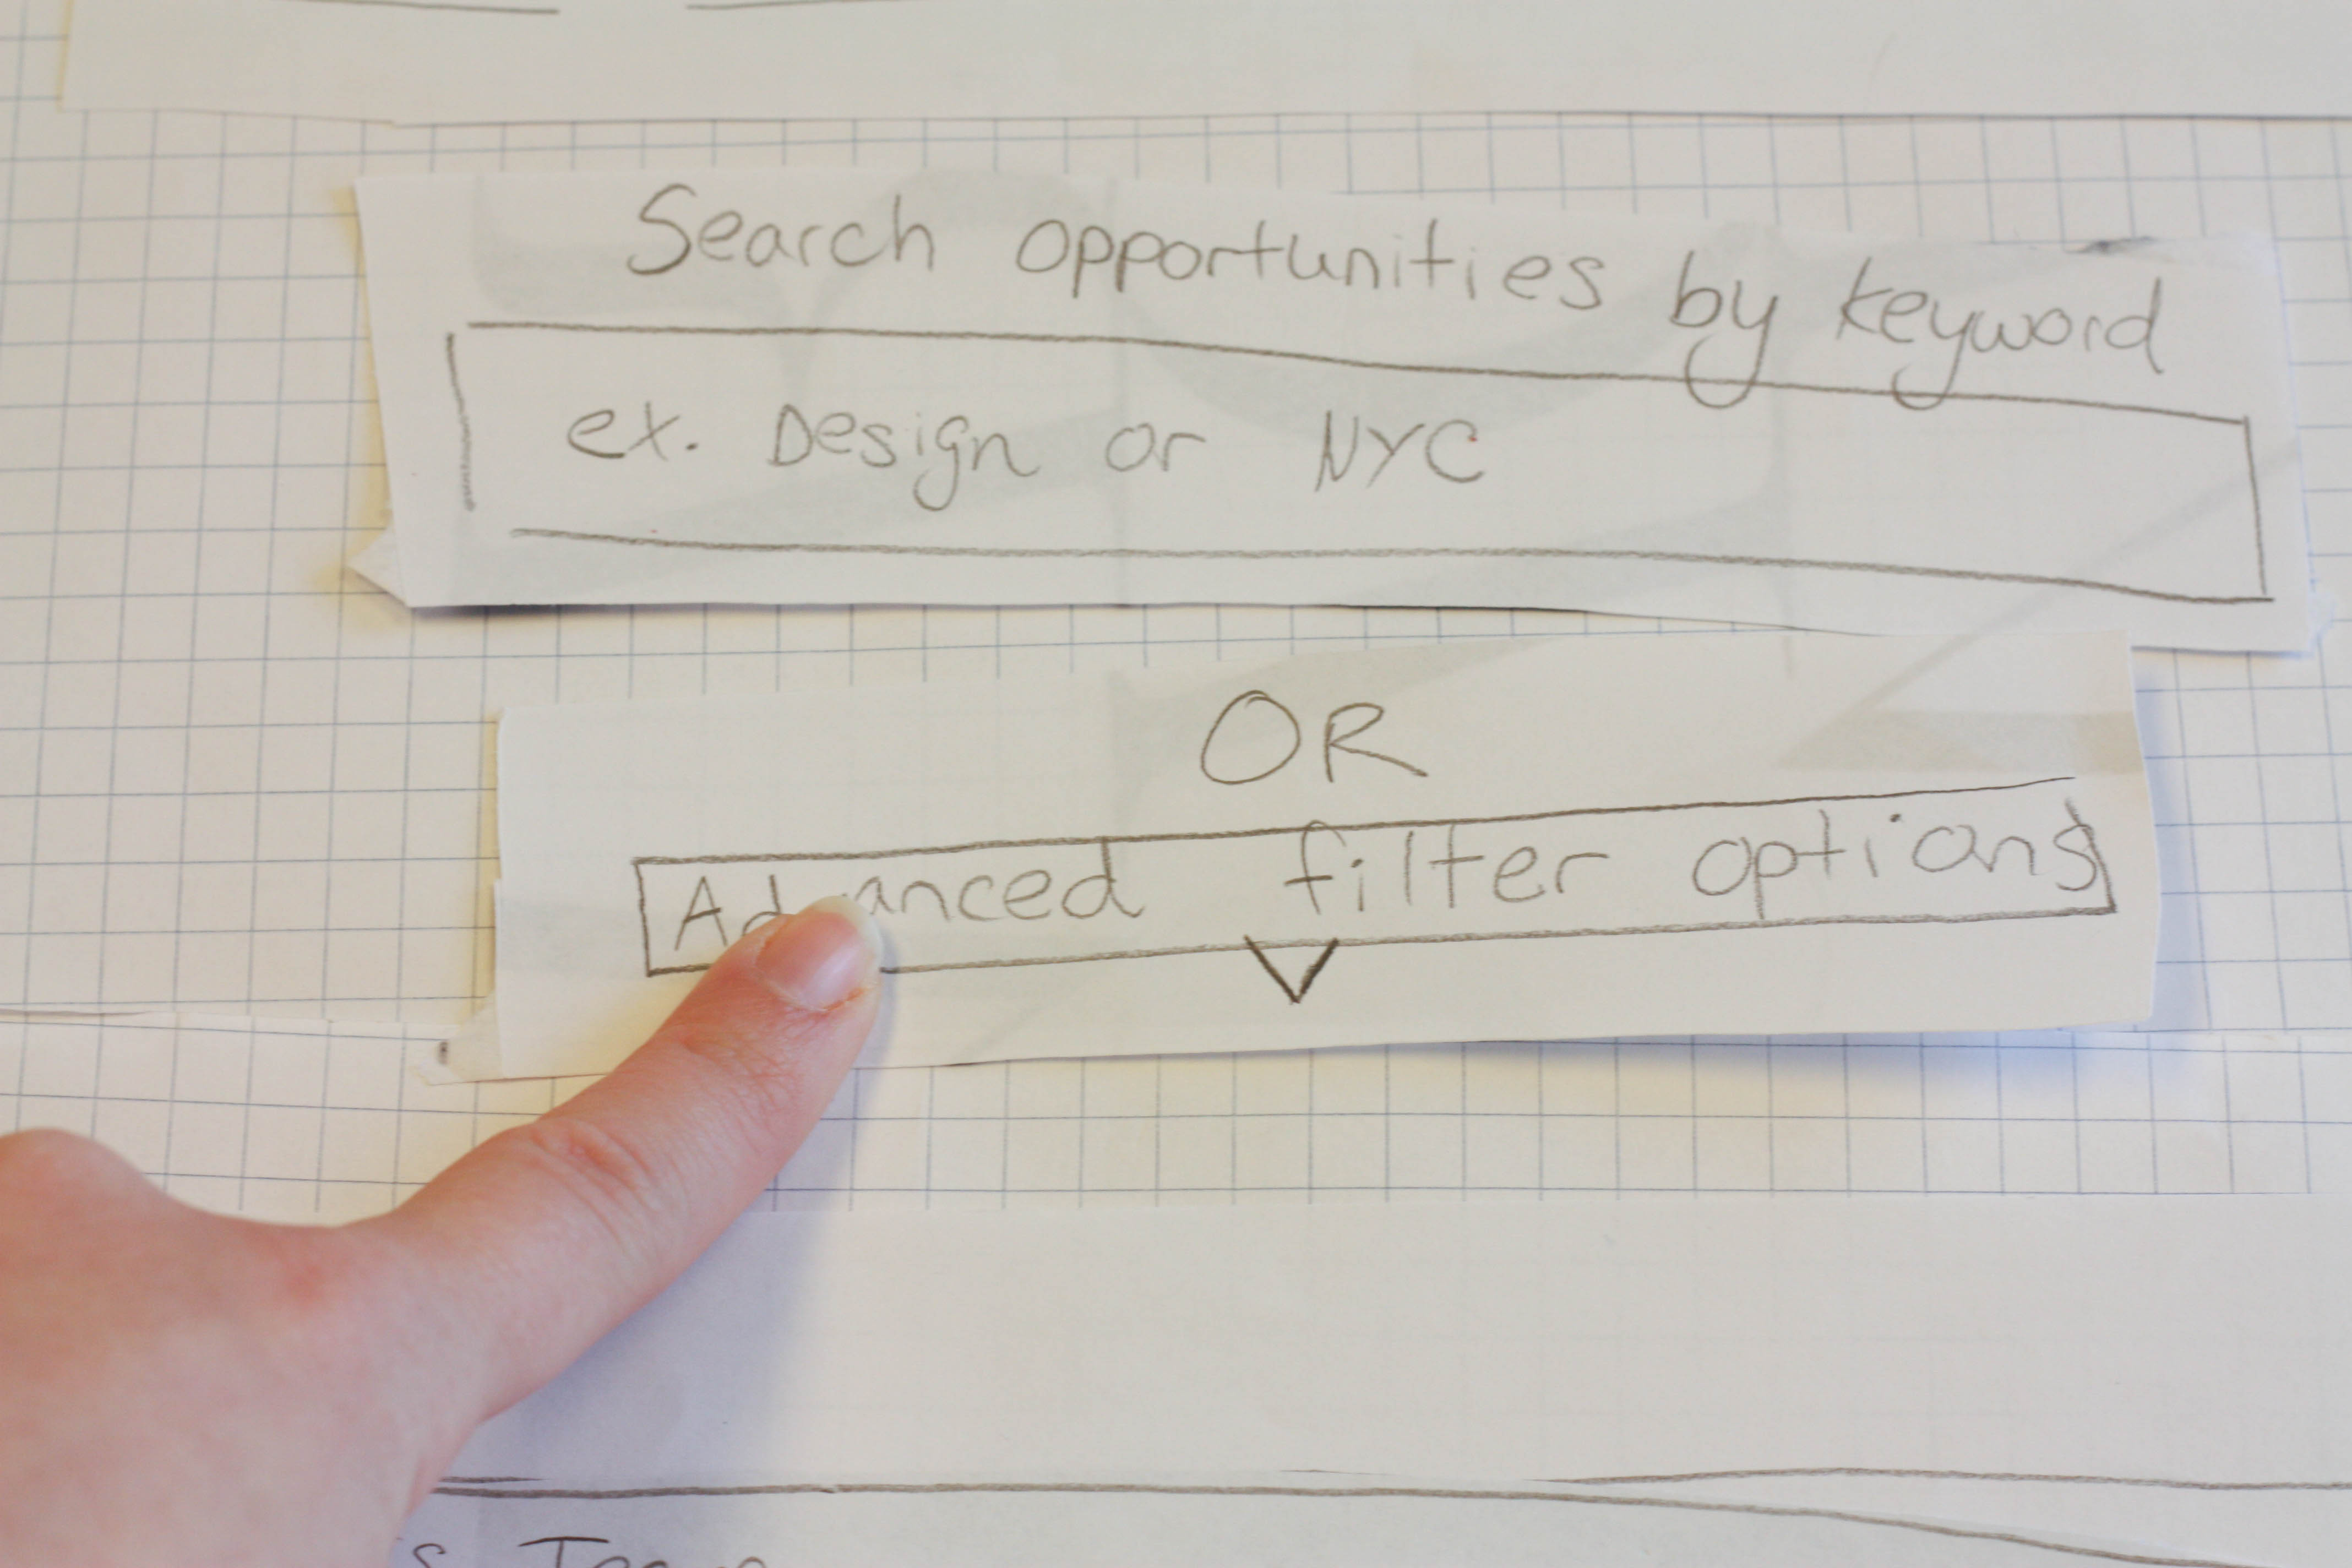 Search opportunities by keyword
ex. Design or NYC
OR
Advanced filter options